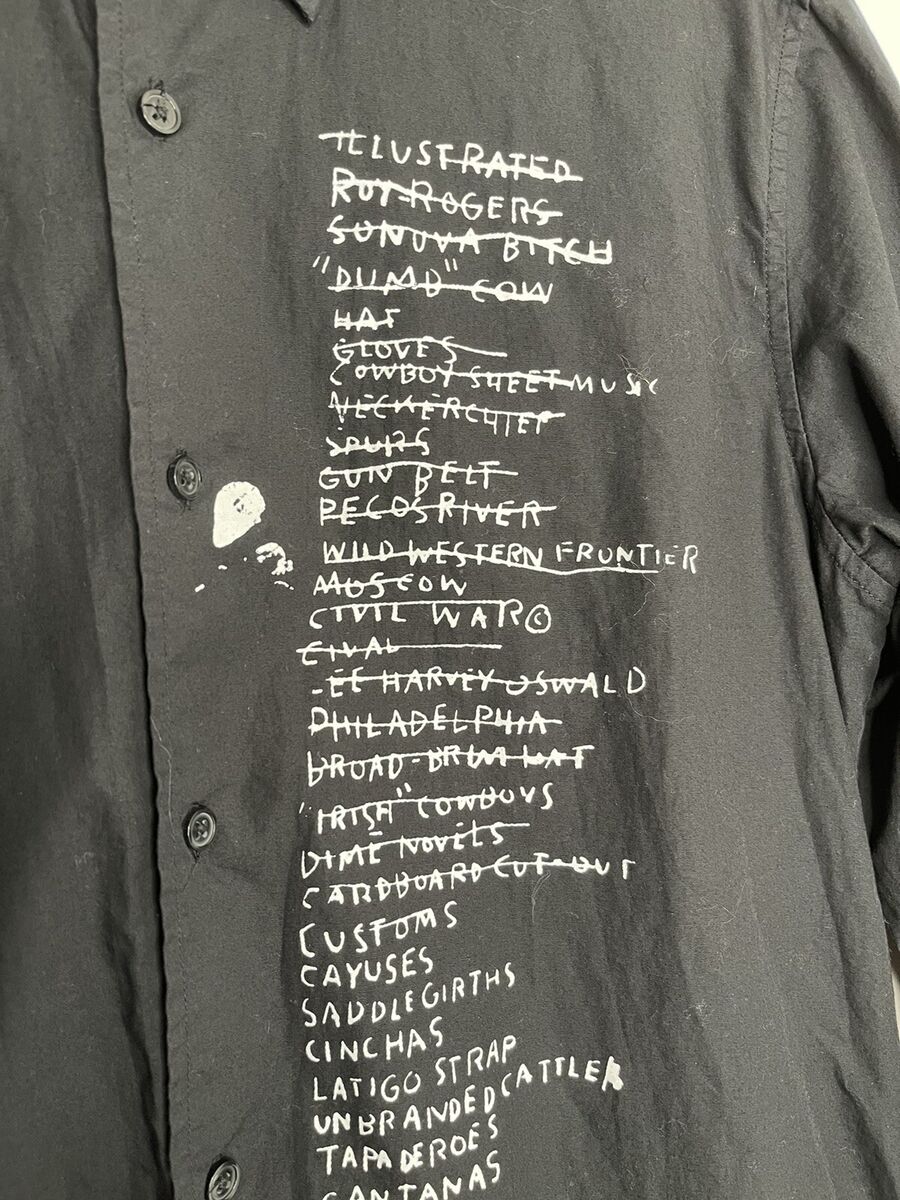 ILLUSTRATED
ROY ROGERS
SONUVA BITCH
"DUMD" COW
HAT
GLOVES
COWBOY SHEET MUSIC
NECKERCHIEF
SPURS
GUN BELT
PECOS RIVER
WILD WESTERN FRONTIER
MOSCOW
CIVIL WAR©
CIVAL
-EE HARVEY OSWALD
PHILADELPHIA
BROAD-BRIM HAT
"IRISH" COWBOYS
DIME NOVELS
CARDBOARD CUT-OUT
CUSTOMS
CAYUSES
SADDLE GIRTHS
CINCHAS
LATIGO STRAP
UNBRANDED CATTLER
TAPADEROES